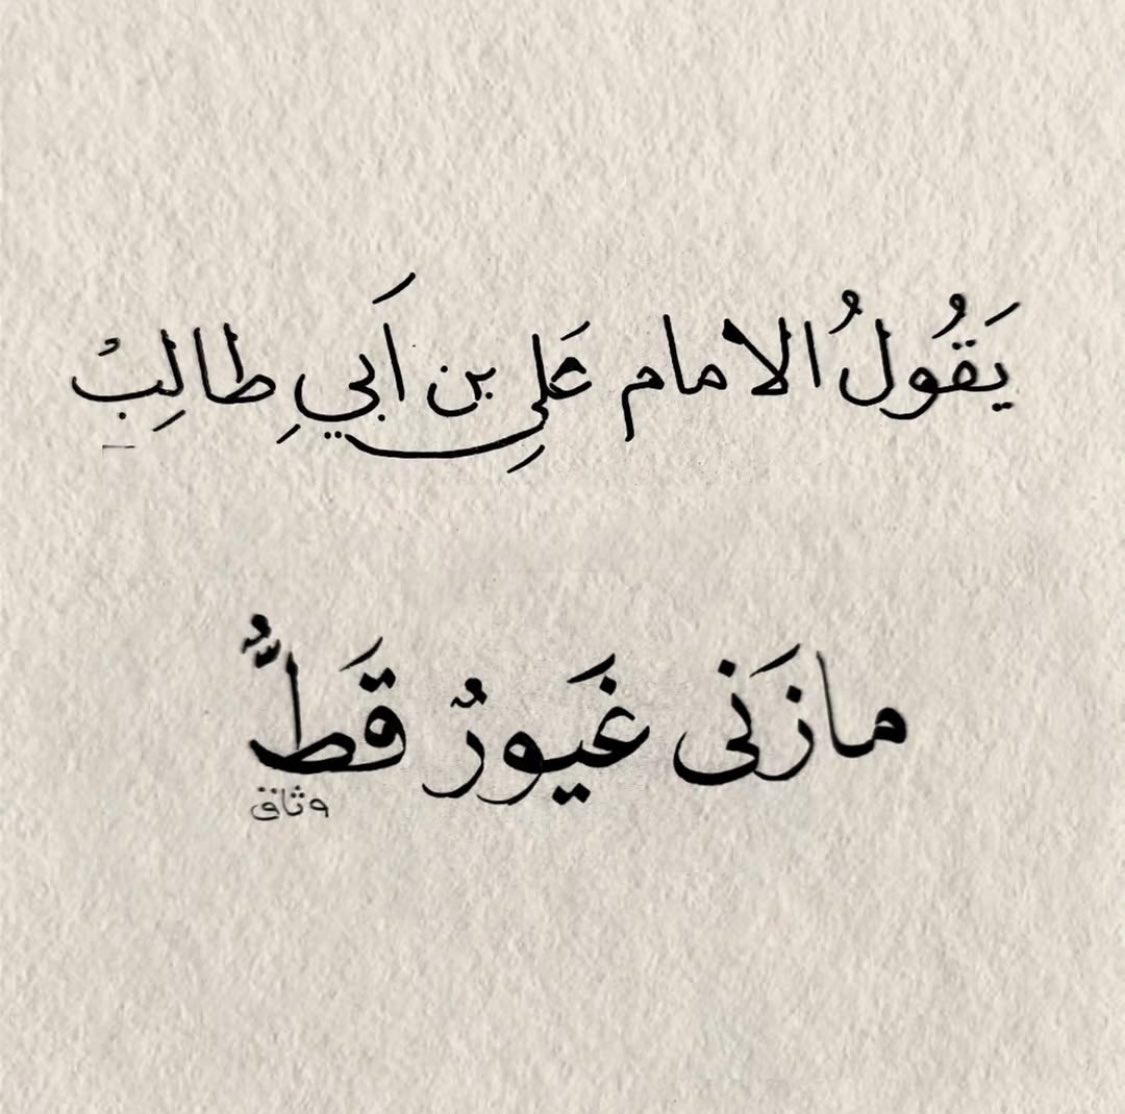 يَقُولُ الامام عَلِي بن اَبي طالِبْ
مازَنى غَيورٌ قَطُّ
وثاق